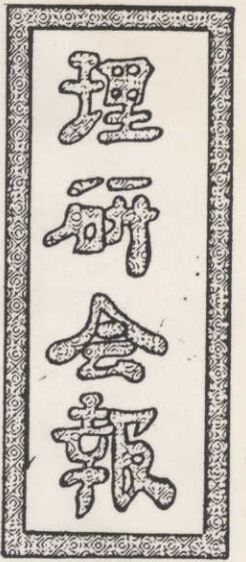 理研会報